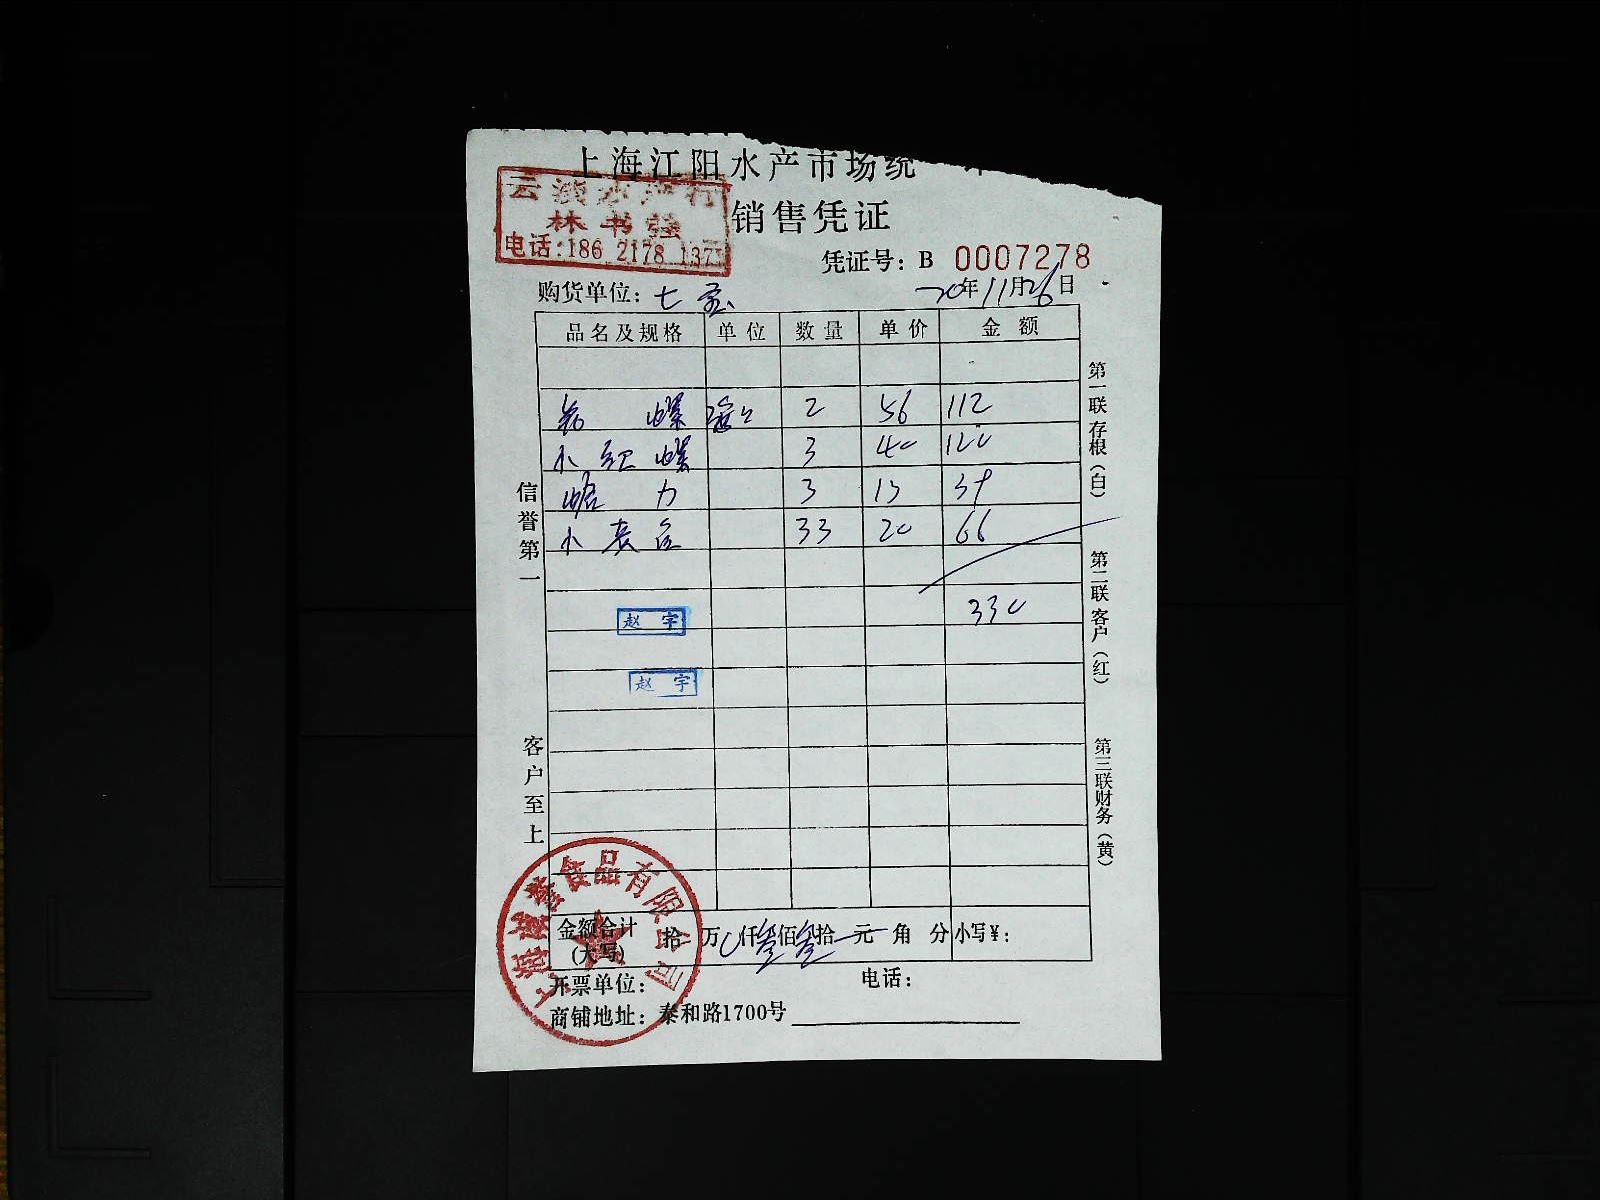 上海江阳水产市场统
云淡水产行
林书强
电话:186 2178 137
销售凭证
凭证号: B 0007278
购货单位: 七宝 20年11月26日
品名及规格 单位 数量 单价 金额
螺 2 56 112
小红螺 3 40 120
3 13 39
小 33 20 66
330
赵 宇
赵 宇
信誉第一
客户至上
第一联存根(白)
第二联客户(红)
第三联财务(黄)
上海诚誉食品有限公司
金额合计(大写) 拾 万 0仟叁佰叁拾 元 角 分 小写¥:
开票单位: 电话:
商铺地址: 泰和路1700号